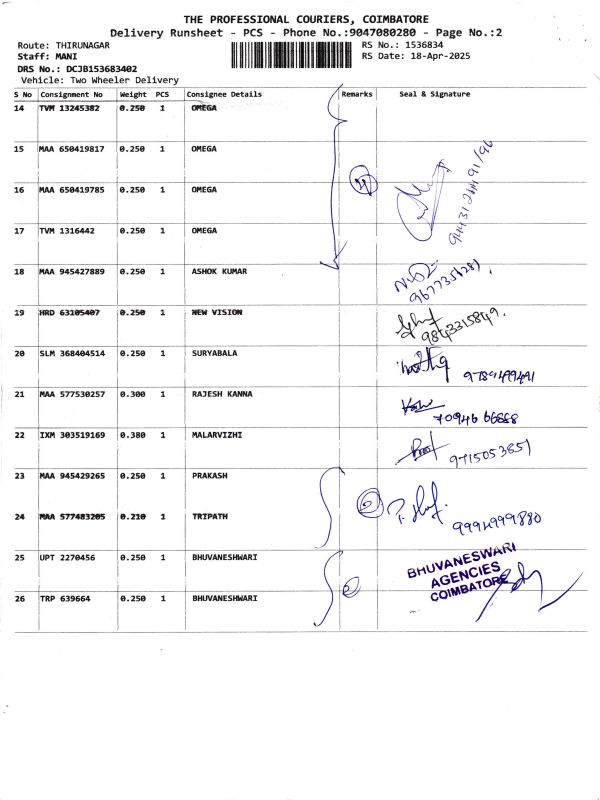 THE PROFESSIONAL COURIERS, COIMBATORE
Delivery Runsheet - PCS - Phone No.:9047080280 - Page No.:2
Route: THIRUNAGAR RS No.: 1536834
Staff: MANI RS Date: 18-Apr-2025
DRS No.: DCJB153683402
Vehicle: Two Wheeler Delivery
S No Consignment No Weight PCS Consignee Details Remarks Seal & Signature
14 TVM 13245382 0.250 1 OMEGA
15 MAA 650419817 0.250 1 OMEGA
16 MAA 650419785 0.250 1 OMEGA
4
17 TVM 1316442 0.250 1 OMEGA
18 MAA 945427889 0.250 1 ASHOK KUMAR
9677356281
19 HRD 63105407 0.250 1 NEW VISION
9843315849
20 SLM 368404514 0.250 1 SURYABALA
9789499491
21 MAA 577530257 0.300 1 RAJESH KANNA
7094666888
22 IXM 303519169 0.380 1 MALARVIZHI
9715053851
23 MAA 945429265 0.250 1 PRAKASH
2
24 MAA 577483205 0.210 1 TRIPATH
9994999880
25 UPT 2270456 0.250 1 BHUVANESHWARI
2
BHUVANESWARI
AGENCIES
COIMBATORE
26 TRP 639664 0.250 1 BHUVANESHWARI